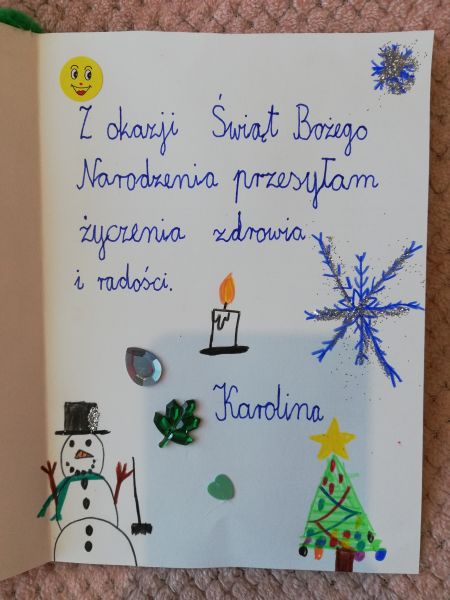 Z okazji Świąt Bożego
Narodzenia przesyłam
życzenia zdrowia
i radości.
Karolina